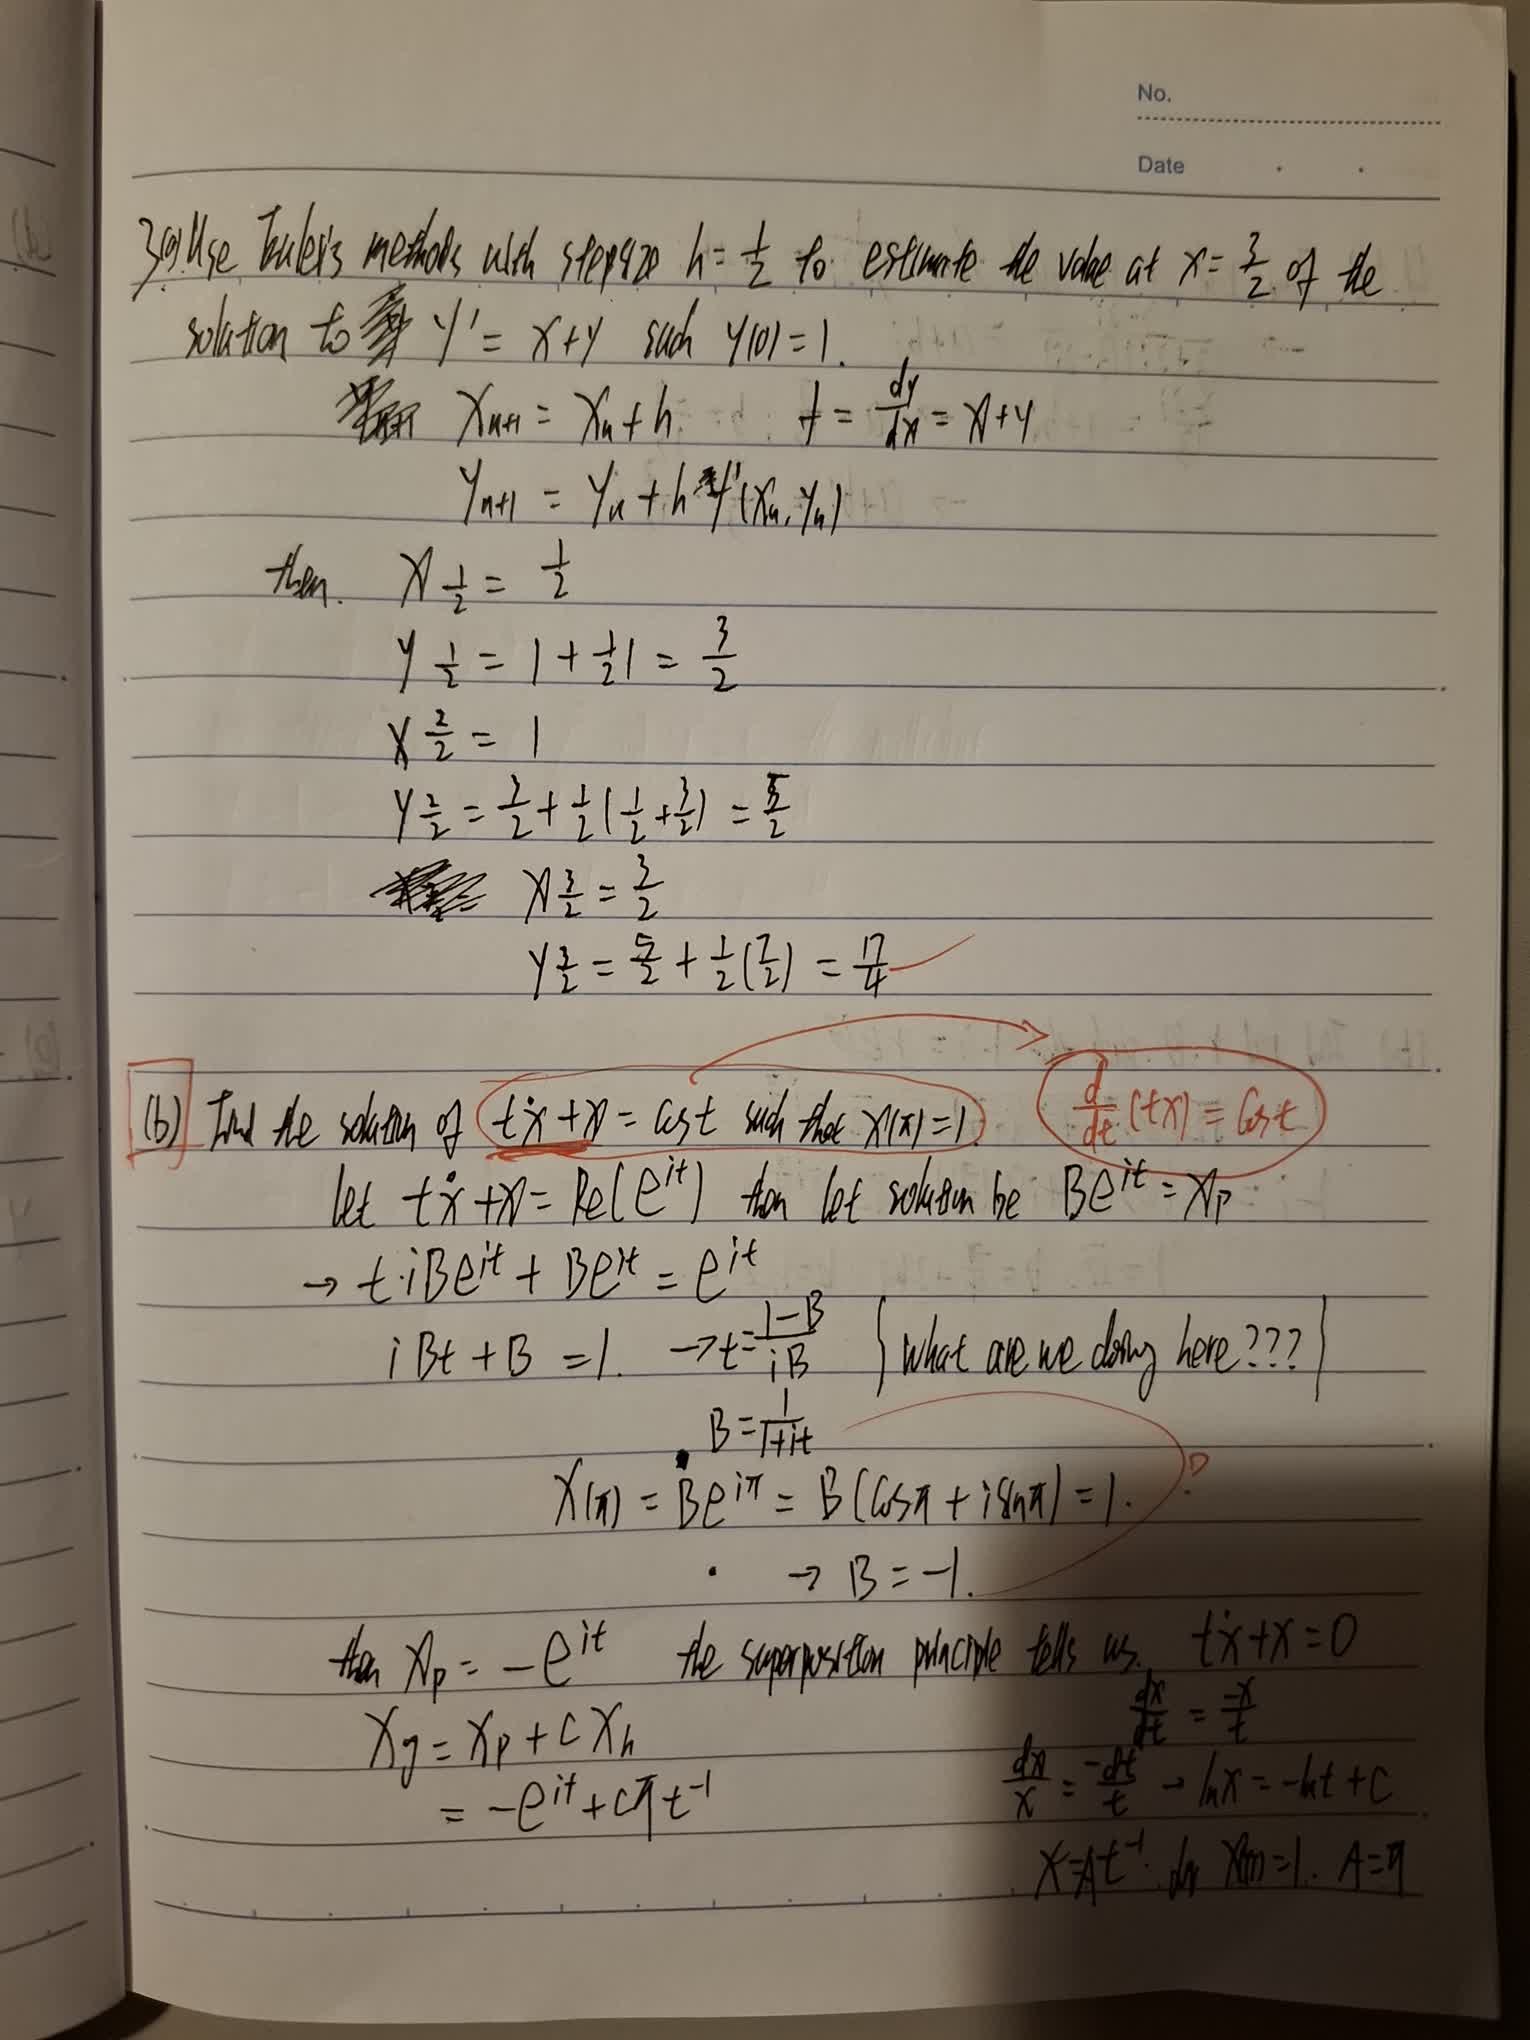 No.
Date
3(a) Use Euler's methods with stepsize h = 1/2 to estimate the value at x = 3/2 of the
solution to y' = x+y such y(0) = 1.
Xn+1 = Xn + h f = dy/dx = x+y
Yn+1 = Yn + h f(Xn, Yn)
then. X 1/2 = 1/2
Y 1/2 = 1 + 1/2 1 = 3/2
X 2/2 = 1
Y 2/2 = 3/2 + 1/2 (1/2 + 3/2) = 5/2
X 3/2 = 3/2
Y 3/2 = 5/2 + 1/2 (7/2) = 17/4
(b) Find the solution of tẋ + x = cos t such that x(π) = 1. d/dt (tx) = cos t
let tẋ + x = Re(e^it) then let solution be Be^it = Xp
→ t·iBe^it + Be^it = e^it
iBt + B = 1. → t = (1-B)/iB { What are we doing here??? }
B = 1/(1+it)
X(π) = Be^iπ = B(cos π + i sin π) = 1. ?
→ B = -1.
then Xp = -e^it the superposition principle tells us. tẋ + x = 0
Xg = Xp + C Xh dx/dt = -x/t
= -e^it + cπt^-1 dx/x = -dt/t → ln x = -ln t + C
X = At^-1. X(π) = 1. A = π